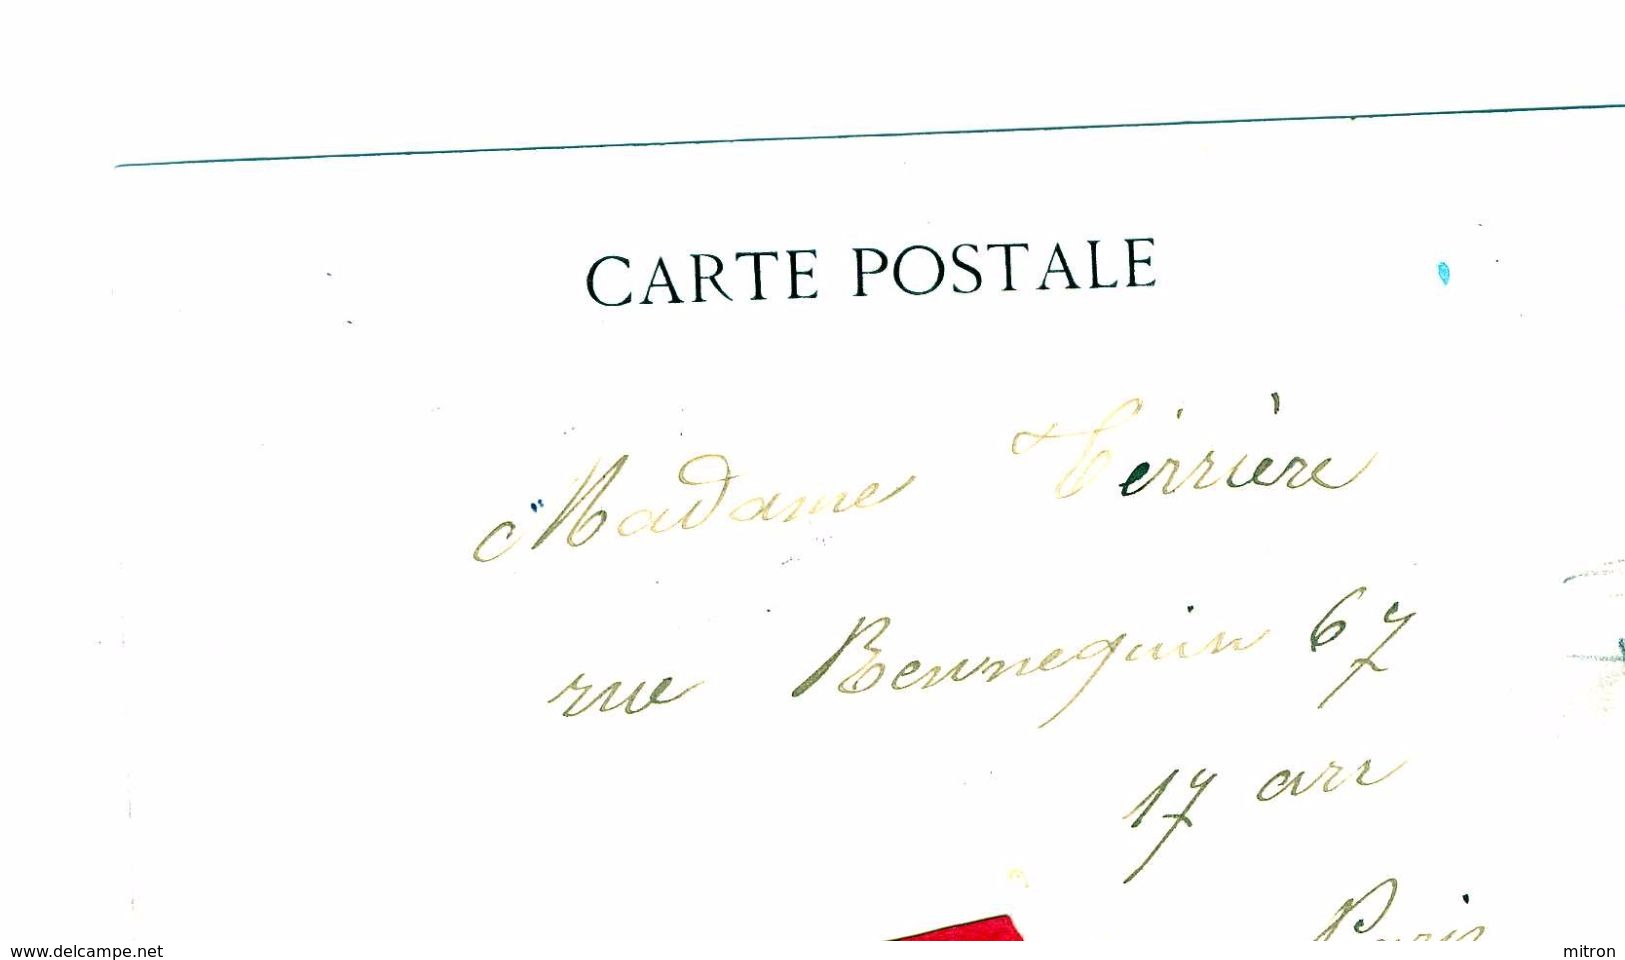 CARTE POSTALE
Madame Terrière
rue Rennequin 67
17 arr
Paris
www.delcampe.net
mitron